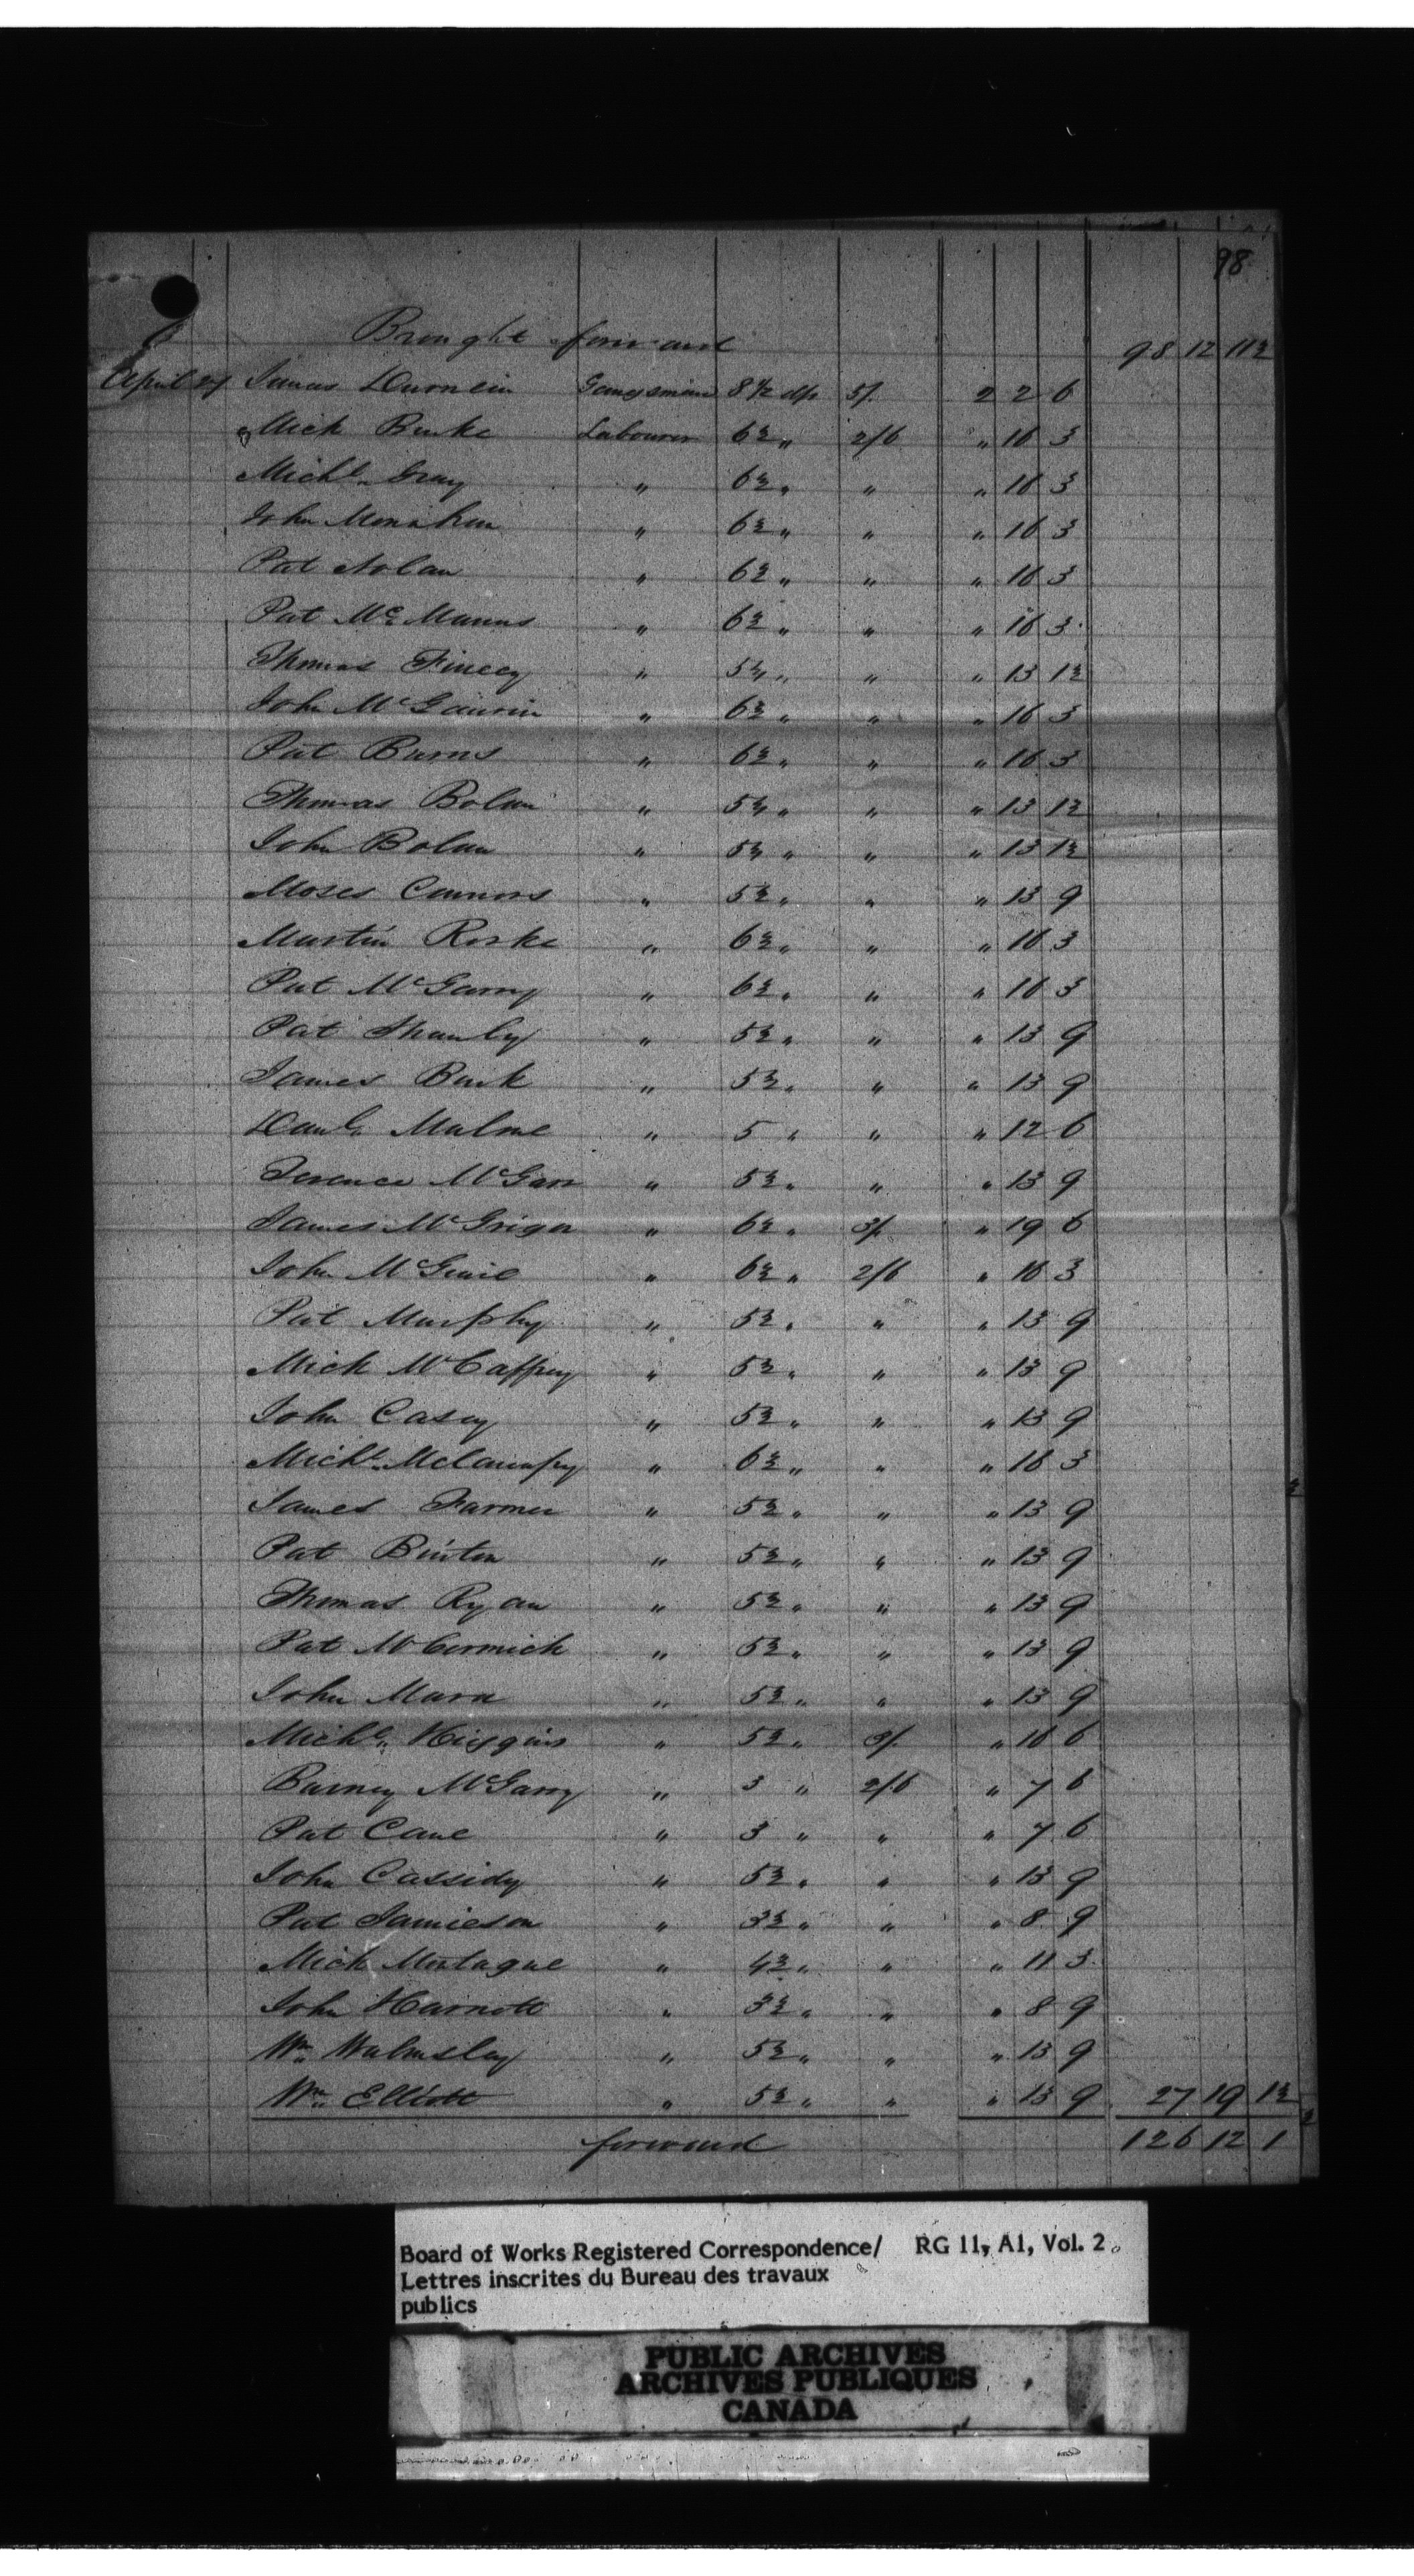 98
Brought forward 98 12 11½
April 27 James Durnein Gangsman 8½ dys 5/. 2 2 6
Mick Burke Labourer 6½ " 2/6 " 16 3
Michl. Gray " 6½ " " " 16 3
John Monahan " 6½ " " " 16 3
Pat Nolan " 6½ " " " 16 3
Pat McManus " 6½ " " " 16 3
Thomas Finecy " 5¼ " " " 13 1½
John McGaurin " 6½ " " " 16 3
Pat Burns " 6½ " " " 16 3
Thomas Bolan " 5¼ " " " 13 1½
John Bolan " 5¼ " " " 13 1½
Moses Connors " 5½ " " " 13 9
Martin Rorke " 6½ " " " 16 3
Pat McGarry " 6½ " " " 16 3
Pat Shanly " 5½ " " " 13 9
James Burk " 5½ " " " 13 9
Danl. Malone " 5 " " " 12 6
Terence McGarr " 5½ " " " 13 9
James McGrigor " 6½ " 3/. " 19 6
John McGuire " 6½ " 2/6 " 16 3
Pat Murphy " 5½ " " " 13 9
Mick McCaffrey " 5½ " " " 13 9
John Casey " 5½ " " " 13 9
Michl. " 6½ " " " 16 3
James Farmer " 5½ " " " 13 9
Pat Binton " 5½ " " " 13 9
Thomas Ryan " 5½ " " " 13 9
Pat McCormick " 5½ " " " 13 9
John Mara " 5½ " " " 13 9
Michl. Higgins " 5½ " 3/. " 16 6
Barney McGarry " 3 " 2/6 " 7 6
Pat Cane " 3 " " " 7 6
John Cassidy " 5½ " " " 13 9
Pat Jamieson " 3½ " " " 8 9
Mick Montague " 4½ " " " 11 3
John Harnott " 3½ " " " 8 9
Wm. Walmsley " 5½ " " " 13 9
Wm. Elliott " 5½ " " " 13 9 27 19 1½
forward 126 12 1
Board of Works Registered Correspondence/ RG 11, A1, Vol. 2.
Lettres inscrites du Bureau des travaux
publics
PUBLIC ARCHIVES
ARCHIVES PUBLIQUES
CANADA